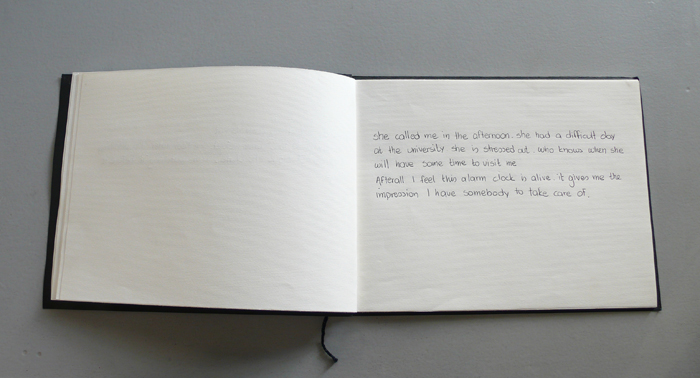 she called me in the afternoon. she had a difficult day
at the university she is stressed out who knows when she
will have some time to visit me
Afterall I feel this alarm clock is alive. it gives me the
impression I have somebody to take care of.